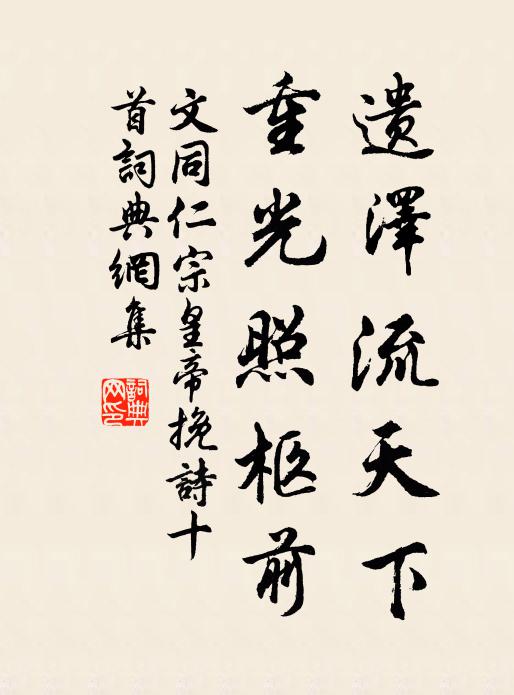 遺澤流天下
重光照柩前
文同仁宗皇帝挽詩十
首詞典網集
詞典
网印